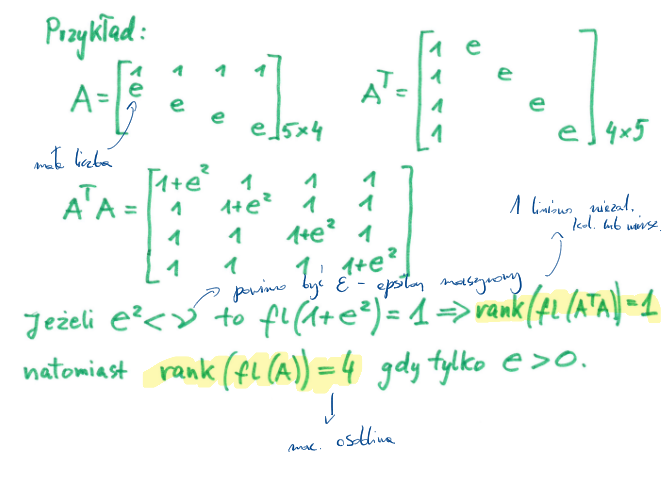 Przykład:
A = [1 1 1 1
e
e
e
e] 5×4
Aᵀ = [1 e
1 e
1 e
1 e] 4×5
mała liczba
AᵀA = [1+e² 1 1 1
1 1+e² 1 1
1 1 1+e² 1
1 1 1 1+e²]
1 liniowo niezal.
kol. lub wiersz
powinno być ε - epsilon maszynowy
Jeżeli e² < ν to fl(1+e²) = 1 ⇒ rank(fl(AᵀA)) = 1
natomiast rank(fl(A)) = 4 gdy tylko e > 0.
mac. osobliwa